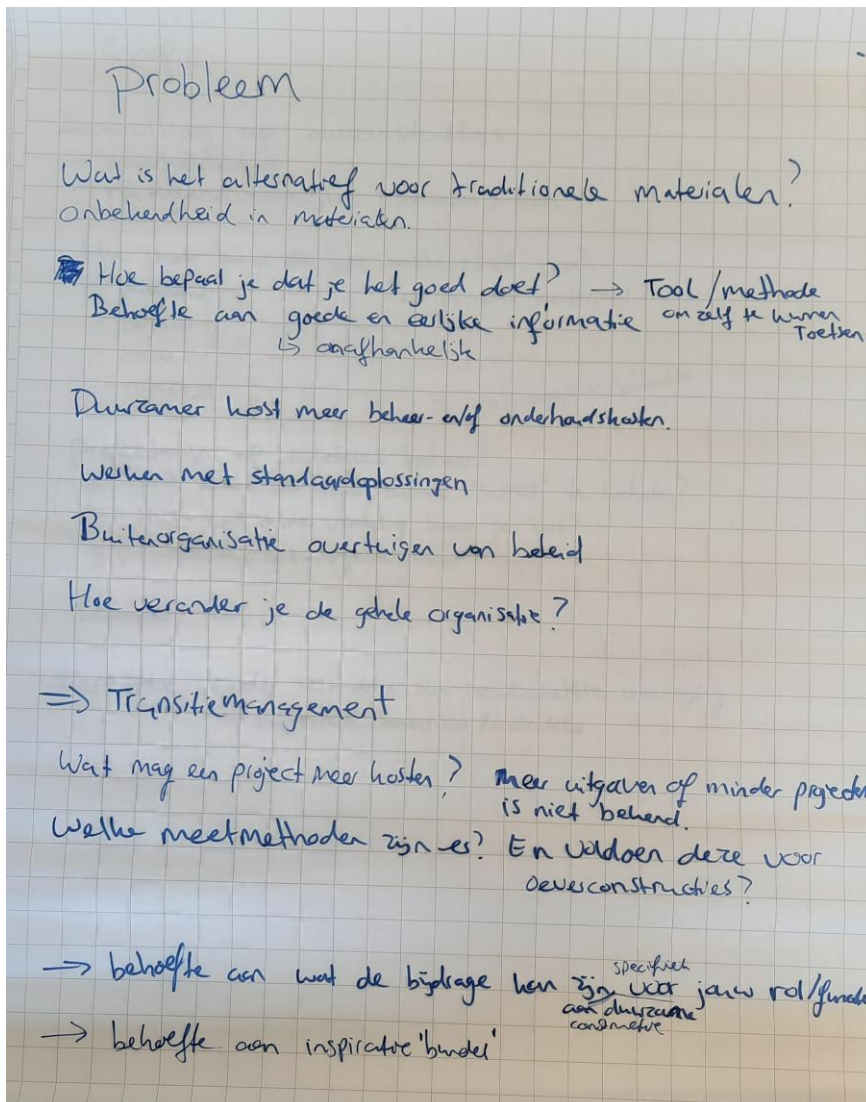 Probleem
Wat is het alternatief voor traditionele materialen?
onbekendheid in materialen.
Hoe bepaal je dat je het goed doet? → Tool/methode
Behoefte aan goede en eerlijke informatie om zelf te kunnen
Toetsen
↳ onafhankelijk
Duurzamer kost meer beheer- en/of onderhoudskosten.
Werken met standaardoplossingen
Buitenorganisatie overtuigen van beleid
Hoe verander je de gehele organisatie?
⇒ Transitiemanagement
Wat mag een project meer kosten? meer uitgaven of minder projecten
is niet bekend.
Welke meetmethoden zijn er? En voldoen deze voor
oeverconstructies?
→ behoefte aan wat de bijdrage kan zijn specifiek voor jouw rol/functie
aan duurzame
constructie
→ behoefte aan inspiratie 'bundel'